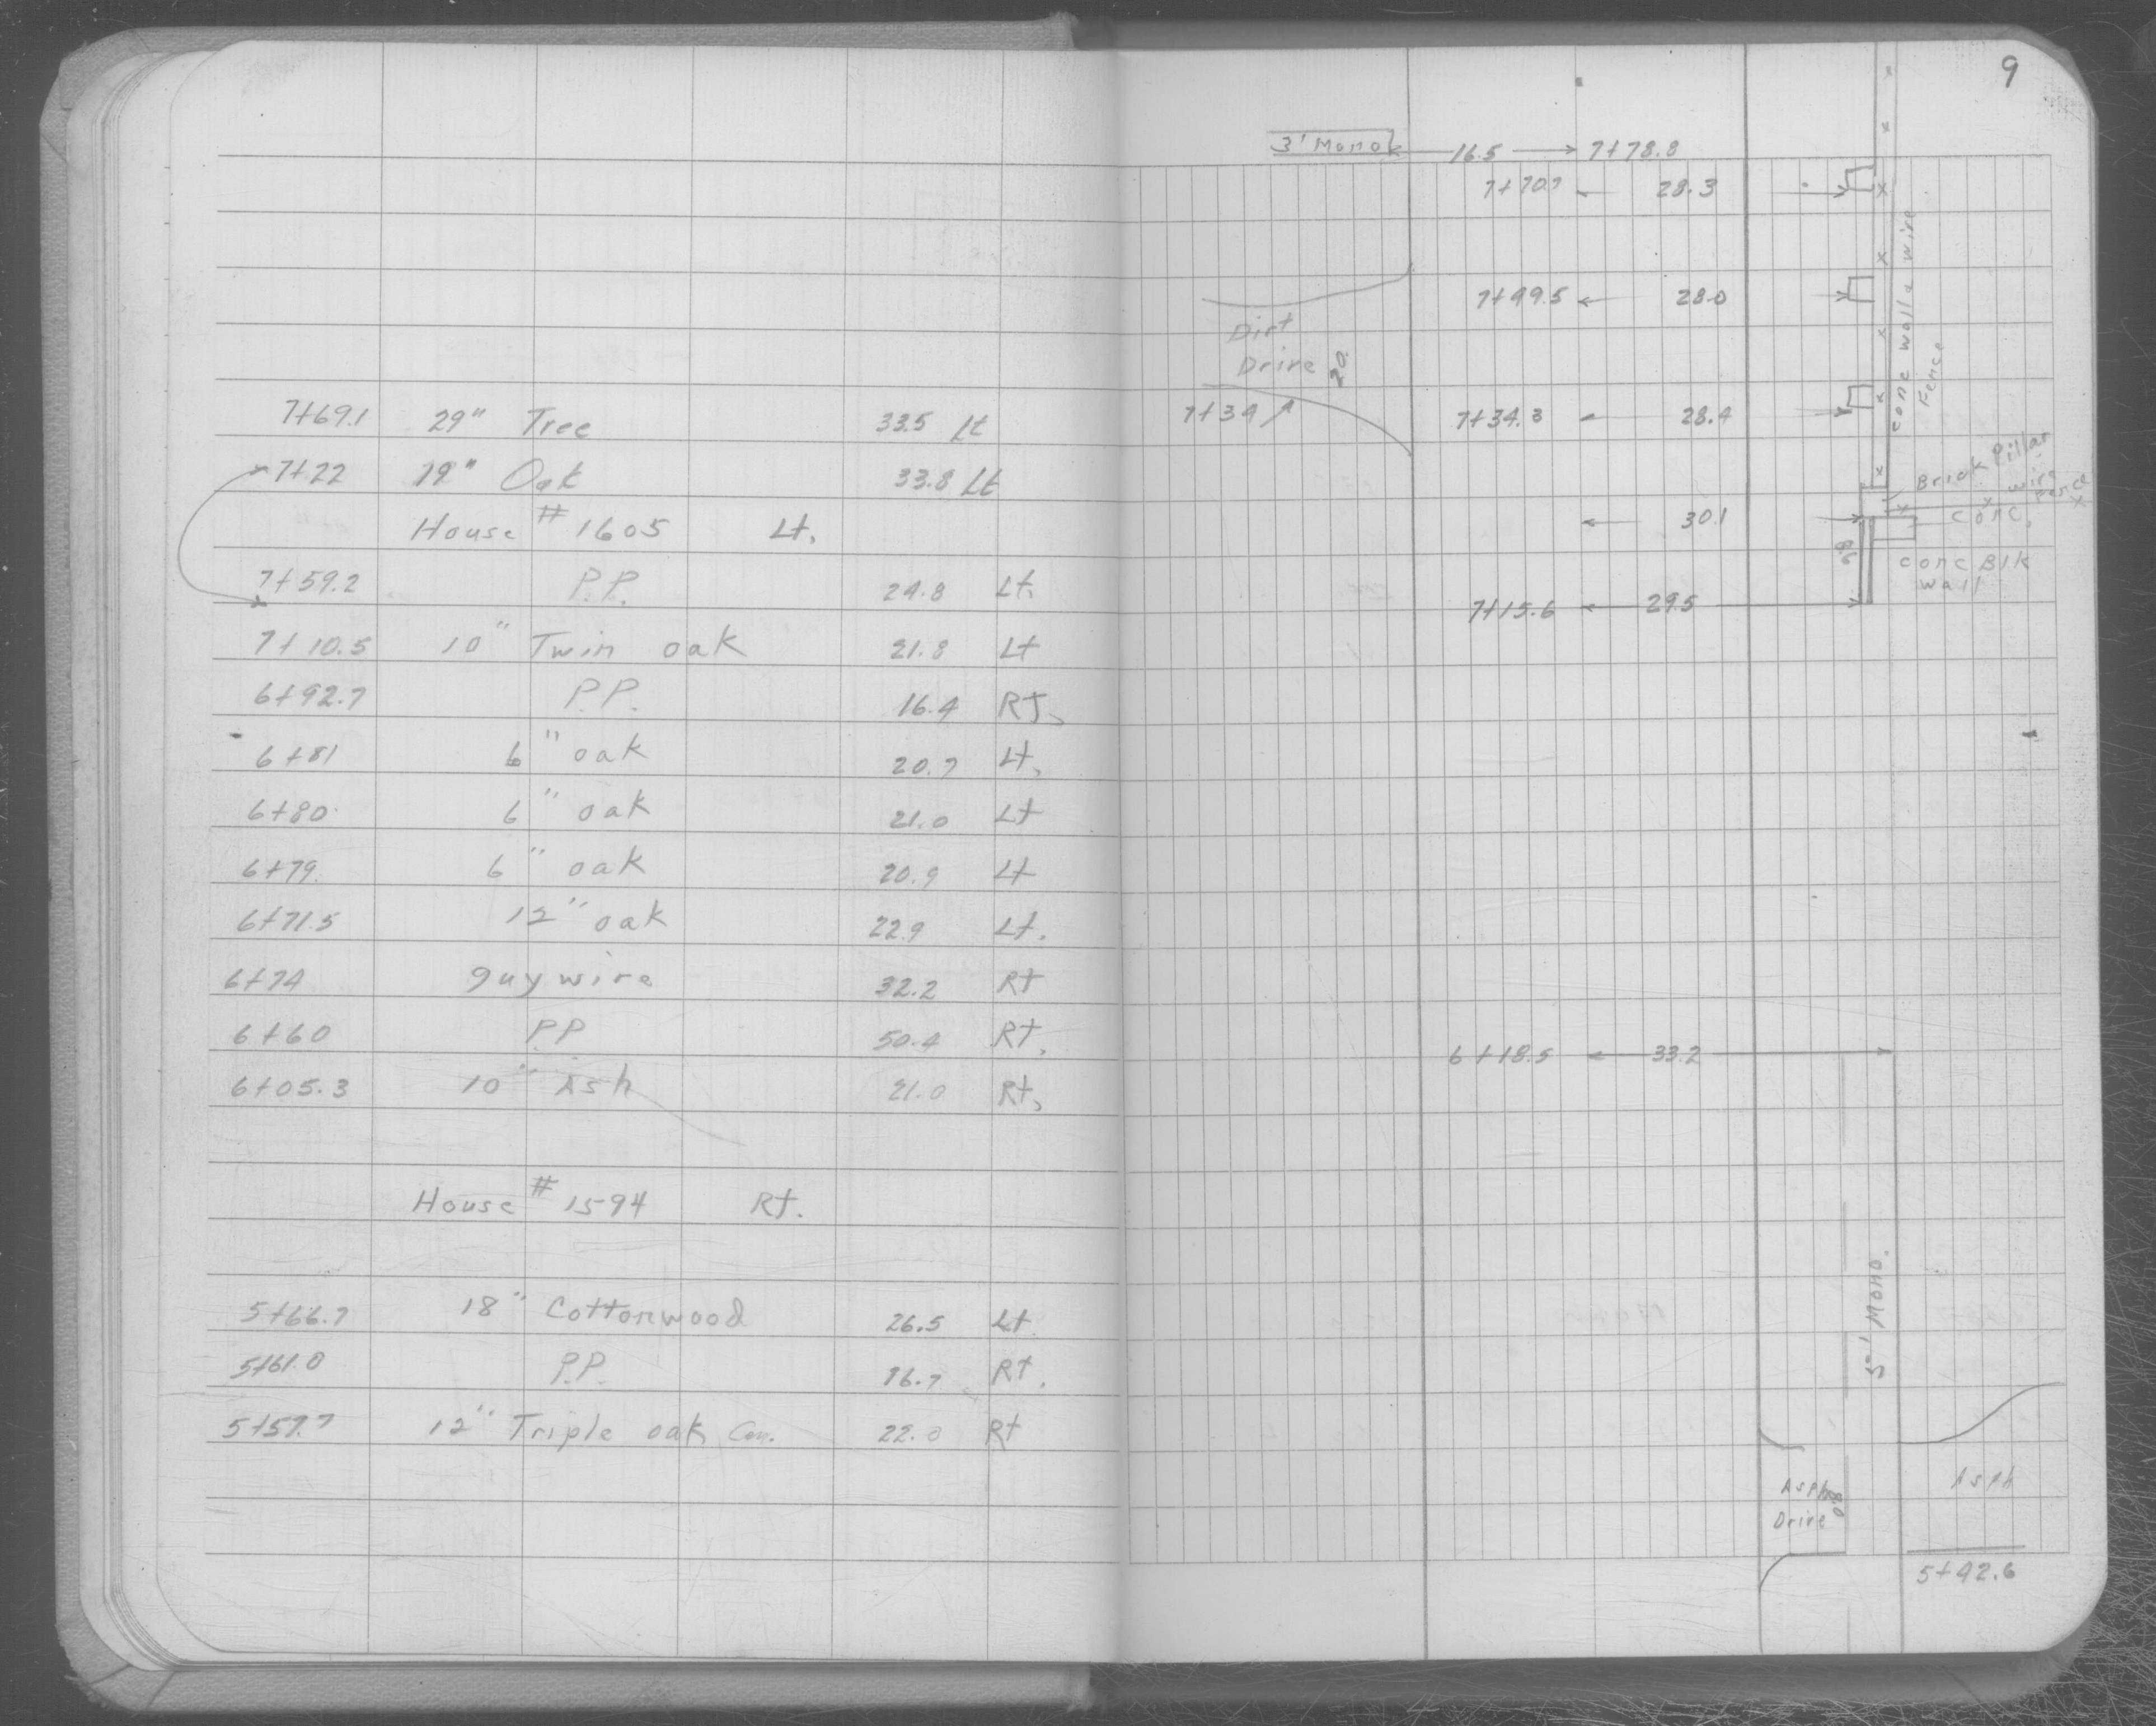 7+69.1 29" Tree 33.5 Lt
7+22 19" Oak 33.8 Lt
House #1605 Lt.
7+59.2 P.P. 24.8 Lt.
7+10.5 10" Twin oak 21.8 Lt
6+92.7 P.P. 16.4 Rt.
6+81 6" oak 20.7 Lt.
6+80 6" oak 21.0 Lt
6+79. 6" oak 20.9 Lt
6+71.5 12" oak 22.9 Lt.
6+74 guy wire 32.2 Rt
6+60 P.P 50.4 Rt.
6+05.3 10" Ash 21.0 Rt.
House #1594 Rt.
5+66.7 18" Cottonwood 26.5 Lt
5+61.0 P.P. 16.7 Rt.
5+57.7 12" Triple oak Cen. 22.0 Rt
9
3' Mono 16.5 7+78.8
7+70.7 28.3
7+49.5 28.0
Dirt
Drive 20.
7+34 7+34.3 28.4
conc wall & wire
Fence
Brick Pillar
wire
Fence
30.1 conc.
conc Blk
wall
7+15.6 29.5
6+18.5 33.2
5' Mono.
Asph
Drive
Asph
5+42.6